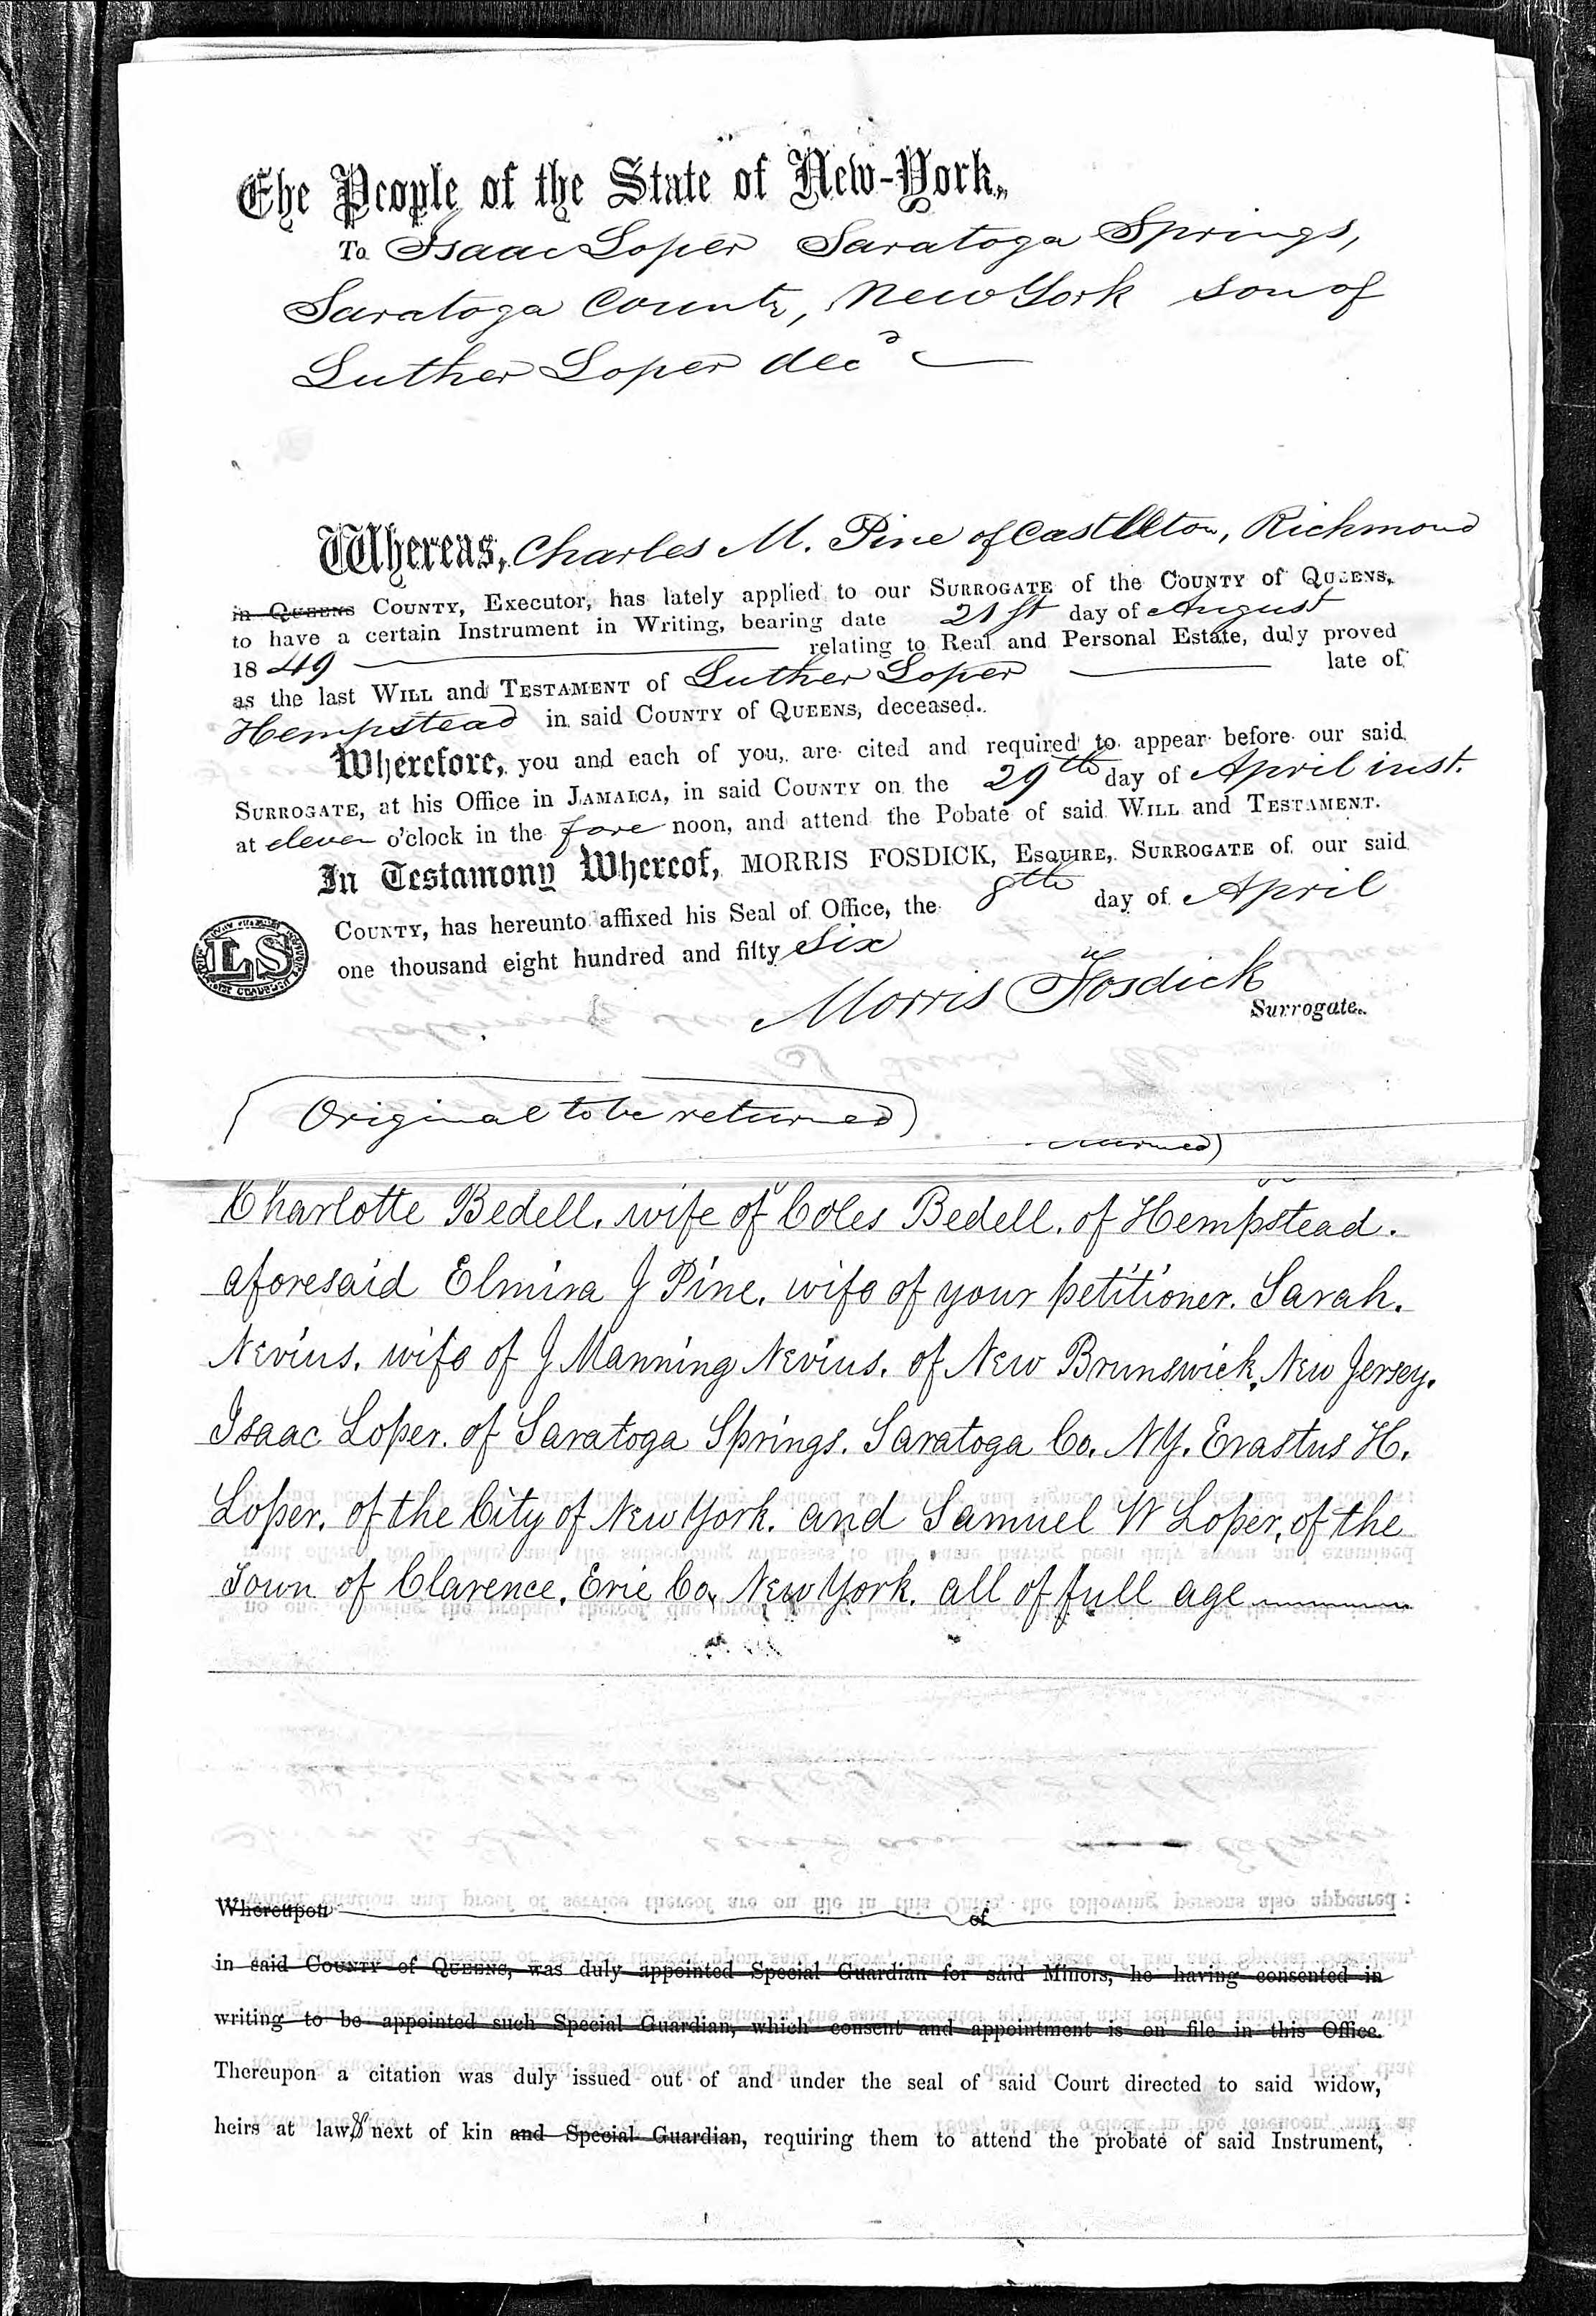 The People of the State of New-York,
To Isaac Loper Saratoga Springs,
Saratoga County, New York son of
Luther Loper decd
Whereas, Charles M. Pine of Castleton, Richmond
in Queens County, Executor, has lately applied to our Surrogate of the County of Queens,
to have a certain Instrument in Writing, bearing date 21st day of August
1849 relating to Real and Personal Estate, duly proved
as the last Will and Testament of Luther Loper late of
Hempstead in said County of Queens, deceased.
Wherefore, you and each of you, are cited and required to appear before our said
Surrogate, at his Office in Jamaica, in said County on the 29th day of April inst.
at eleven o'clock in the fore noon, and attend the Pobate of said Will and Testament.
In Testamony Whereof, MORRIS FOSDICK, Esquire, Surrogate of our said
County, has hereunto affixed his Seal of Office, the 8th day of April
one thousand eight hundred and fifty six
LS
Morris Fosdick
Surrogate.
(Original to be returned)
Charlotte Bedell, wife of Coles Bedell, of Hempstead.
aforesaid Elmira J Pine, wife of your petitioner. Sarah.
Nevius, wife of J Manning Nevius, of New Brunswick, New Jersey.
Isaac Loper. of Saratoga Springs. Saratoga Co. NY. Erastus H.
Loper. of the City of New York. and Samuel W Loper, of the
Town of Clarence. Erie Co, New York. all of full age
Whereupon of
in said County of Queens, was duly appointed Special Guardian for said Minors, he having consented in
writing to be appointed such Special Guardian, which consent and appointment is on file in this Office.
Thereupon a citation was duly issued out of and under the seal of said Court directed to said widow,
heirs at law, & next of kin and Special Guardian, requiring them to attend the probate of said Instrument,